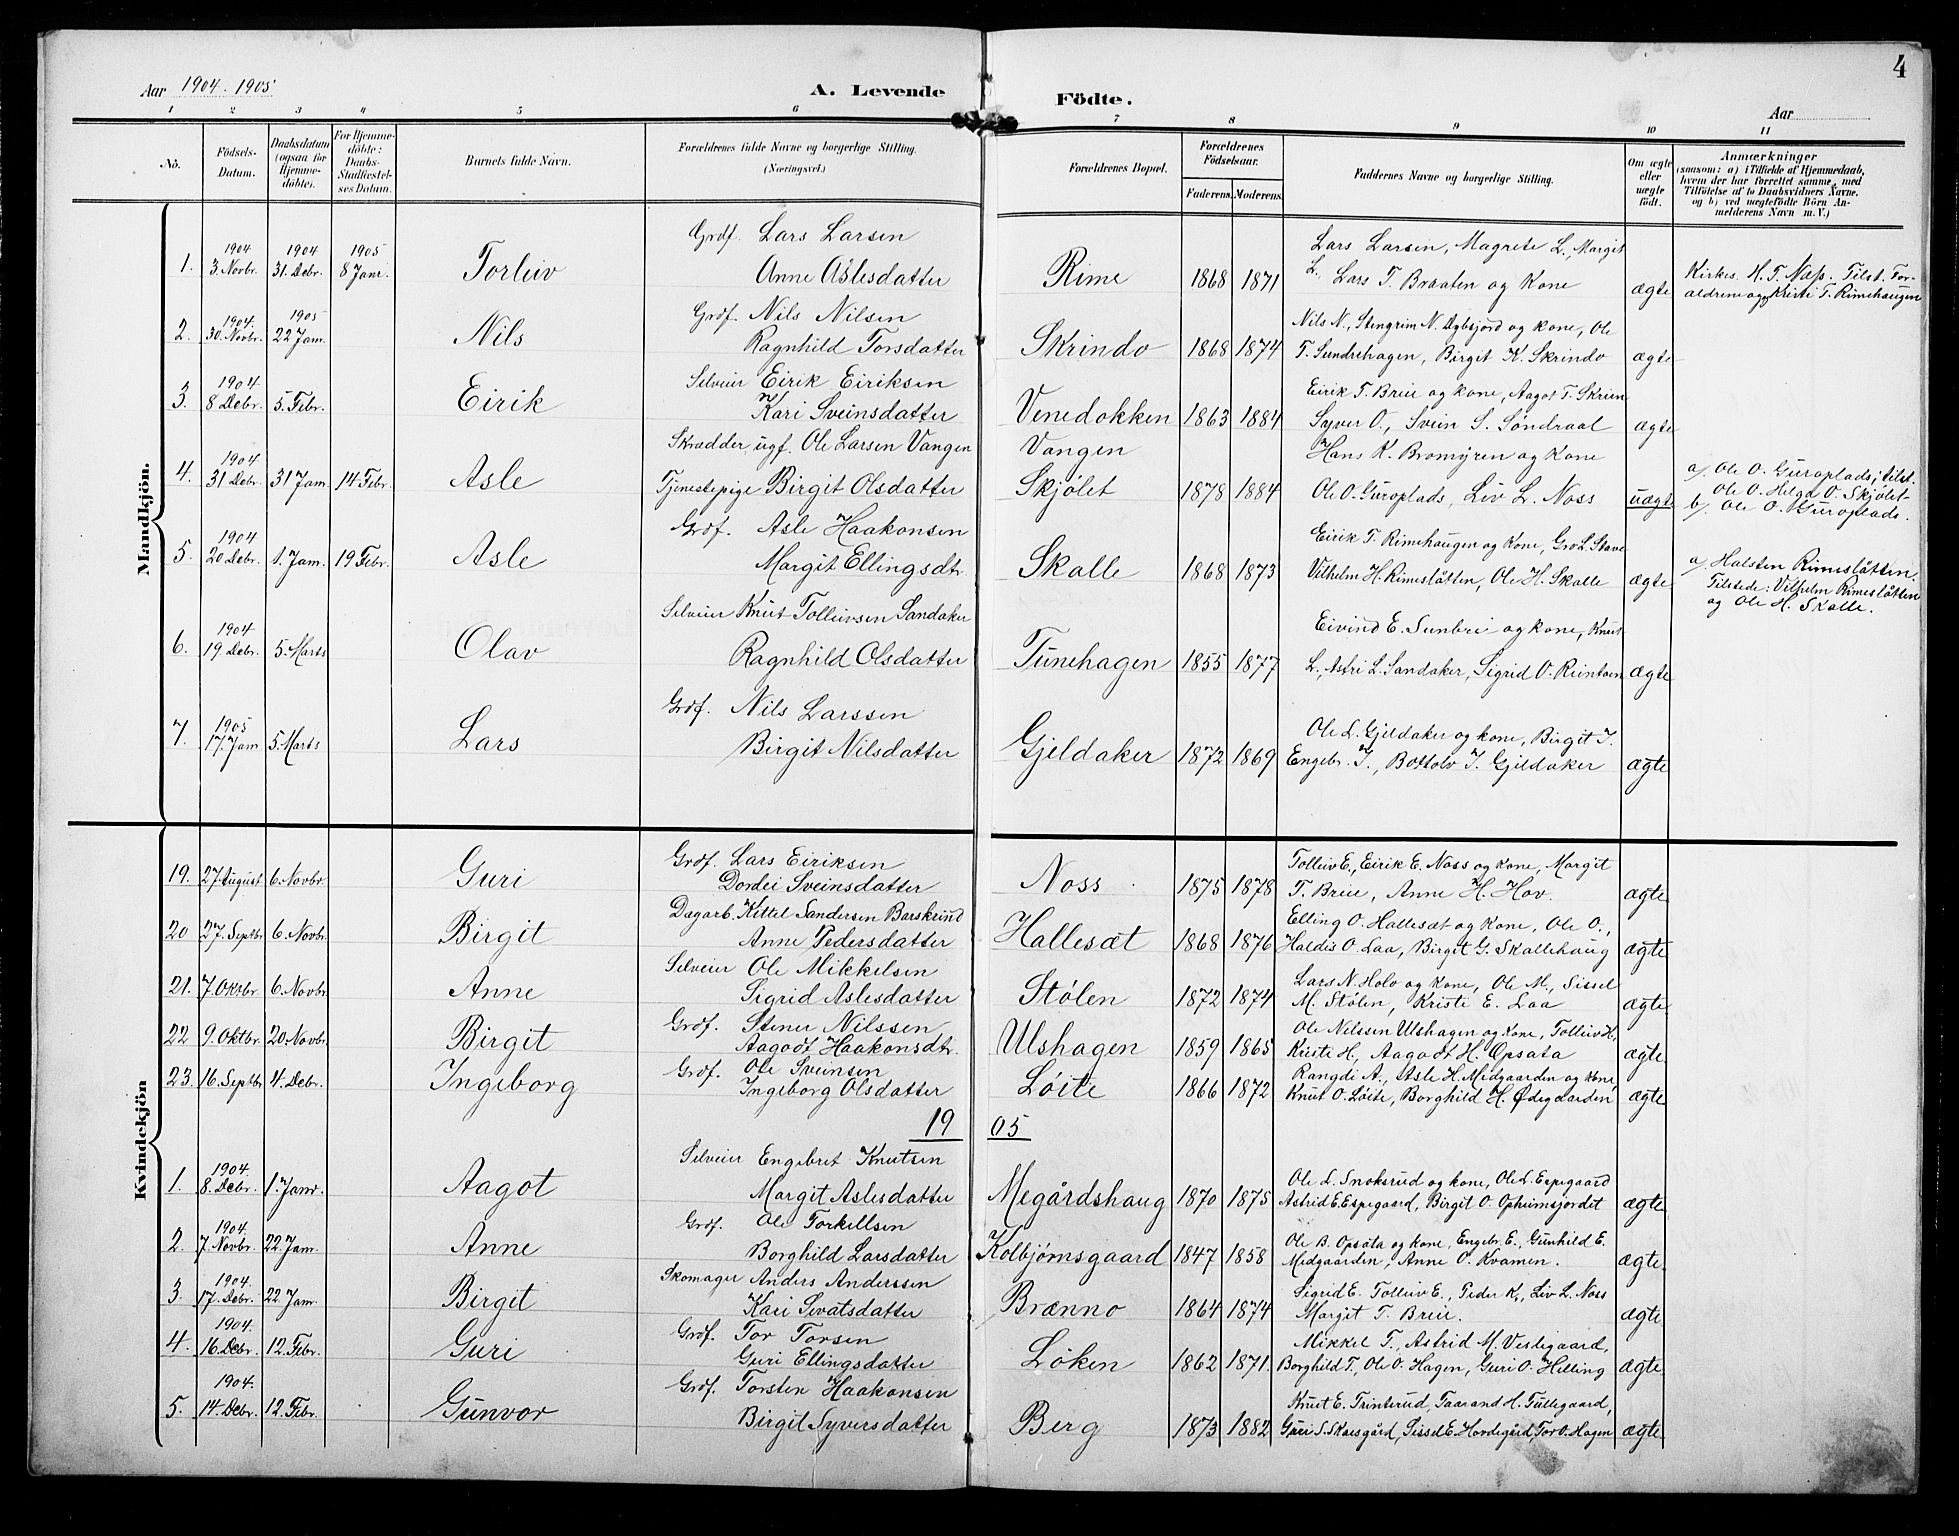 4
Aar 1904-1905
A. Levende Födte.
Aar
1 2 3 4 5 6 7 8 9 10 11
No.
Födsels-Datum.
Daabsdatum (ogsaa for Hjemme-döbte).
For Hjemme-döbte: Daabs-Stadfæstel-ses Datum.
Barnets fulde Navn.
Forældrenes fulde Navne og borgerlige Stilling. (Næringsvei.)
Forældrenes Bopæl.
Forældrenes Födselsaar.
Faderens. Moderens.
Faddernes Navne og borgerlige Stilling.
Om ægte eller uægte födt.
Anmærkninger
(saasom: a) i Tilfælde af Hjemmedaab, hvem der har forrettet samme, med Tilföielse af to Daabsvidners Navne, og b) ved uægtefödte Börn Anmelderens Navn m. V.)
Mandkjön.
1. 1904 3. Novbr. 1904 31. Debr. 1905 8 Janr. Torleiv Grdf. Lars Larsen
Anne Aslesdatter Rime 1868 1871 Lars Larsen, Magrete L., Margit
L., Lars T. Braaten og Kone ægte Kirkes. H. T. Næss. Tilst. For-
ældrene og Kristi T. Rimehaugen
2. 1904 30. Novbr. 1905 22 Jan. Nils Grdf. Nils Nilsen
Ragnhild Torsdatter Skrindo 1868 1874 Nils N., Stengrim N. Dybsjord og kone, Ole
T. Sundrehagen, Birgit K. Skrindo ægte
3. 1904 8 Debr. 5. Febr. Eirik Selveier Eirik Eiriksen
Kari Sveinsdatter Venedokken 1863 1884 Eirik T. Brue og kone, Aagot T. Skrien
Syver O., Svein S. Søndraal ægte
4. 1904 31 Debr. 31 Jan. 14 Febr. Asle Skrædder, ugf. Ole Larsen Vangen
Tjenestepige Birgit Olsdatter Vangen
Skjølet 1878 1884 Hans K. Bromyren og Kone
Ole O. Guroplads, Liv L. Noss uægte a/ Ole O. Guroplads; tilst.
Ole O. Helga O. Skjølet
b/ Ole O. Guroplads.
5. 1904 20 Debr. 1. Jan. 19 Febr. Asle Grdf. Asle Haakonsen
Margit Ellingsdtr Skalle 1868 1873 Eirik T. Rimehaugen og Kone, Gro L. Stave
Vilhelm H. Rimeslåtten, Ole H. Skalle ægte a/ Halsten Rimeslåtten.
Tilstede: Vilhelm Rimeslåtten
og Ole H. Skalle.
6. 1904 19. Debr. 5. Marts Olav Selveier Knut Tolleivsen Sandaker
Ragnhild Olsdatter Tunehagen 1855 1877 Eivind E. Sunbrei og kone, Knut
L., Astri L. Sandaker, Sigrid O. ægte
7. 1905 17. Jan 5. Marts Lars Grdf. Nils Larssen
Birgit Nilsdatter Gjeldaker 1872 1869 Ole L. Gjeldaker og kone, Birgit I.
Engebr. I., Bottolv I. Gjeldaker ægte
Kvindekjön
19. 27 August 6. Novbr. Guri Grdf. Lars Eiriksen
Dordei Sveinsdatter Noss 1875 1878 Tolleiv E., Eirik E. Noss og kone, Margit
T. Brue, Anne H. Hov. ægte
20 27. Septbr 6. Novbr. Birgit Dagarb. Kittel Sandersen Barskrind
Anne Pedersdatter Hallesæt 1868 1876 Elling O. Hallesæt og Kone, Ole O.,
Haldis O. Laa, Birgit G. Skallehaug ægte
21. 7. Oktbr 6. Novbr. Anne Selveier Ole Mikkelsen
Sigrid Aslesdatter Stølen 1872 1874 Lars N. Holo og kone, Ole M., Sissel
M. Stølen, Kristi E. Laa ægte
22 9. Oktbr. 20. Novbr. Birgit Grdf. Stener Nilssen
Aagodt Haakonsdtr. Ulshagen 1859 1865 Ole Nilssen Ulshagen og Kone, Tolleiv H.,
Kristi H., Aagodt H. Opsata ægte
23. 16. Septbr 4. Debr. Ingeborg Grdf. Ole Sveinsen
Ingeborg Olsdatter Løite 1866 1872 Rangdi A., Asle H. Midgaarden og kone,
Knut O. Løite, Borghild H. Ødegaarden ægte
19 05
1. 1904. 8. Debr. 1. Janr. Aagot Selveier Engebret Knutsen
Margit Aslesdatter Megårdshaug 1870 1875 Ole L. Snoksrud og kone, Ole L. Espegaard
Astrid E. Espegaard, Birgit O. Opheimsjordet ægte
2. 1904. 7. Novbr. 22. Jan. Anne Grdf. Ole Torkillsen
Borghild Larsdatter Kolbjørnsgaard 1847 1858 Ole B. Opsata og kone, Engebr. E., Gunhild E.
Midgaarden, Anne O. Kvamen. ægte
3. 1904. 17. Debr. 22 Jan. Birgit Skomager Anders Anderssen
Kari Sevatsdatter Brænno 1864 1874 Sigrid E. Tolleiv E., Peder K., Liv L. Noss
Margit T. Brue. ægte
4. 1904. 16. Debr. 12. Febr. Guri Grdf. Tor Torsen
Guri Ellingsdatter Løken 1862 1871. Mikkel T., Astrid M. Vestegaard,
Borghild T., Ole O. Hagen, Guri O. Hilling ægte
5. 1904. 14. Debr. 12. Febr. Gunvor Grdf. Torsten Haakonsen
Birgit Syversdatter Berg 1873 1882 Knut E. Trinterud, Taarand H. Tullegaard,
Guri S. Skaresgård, Sissel E. Hovdegård, Tor O. Hagen ægte